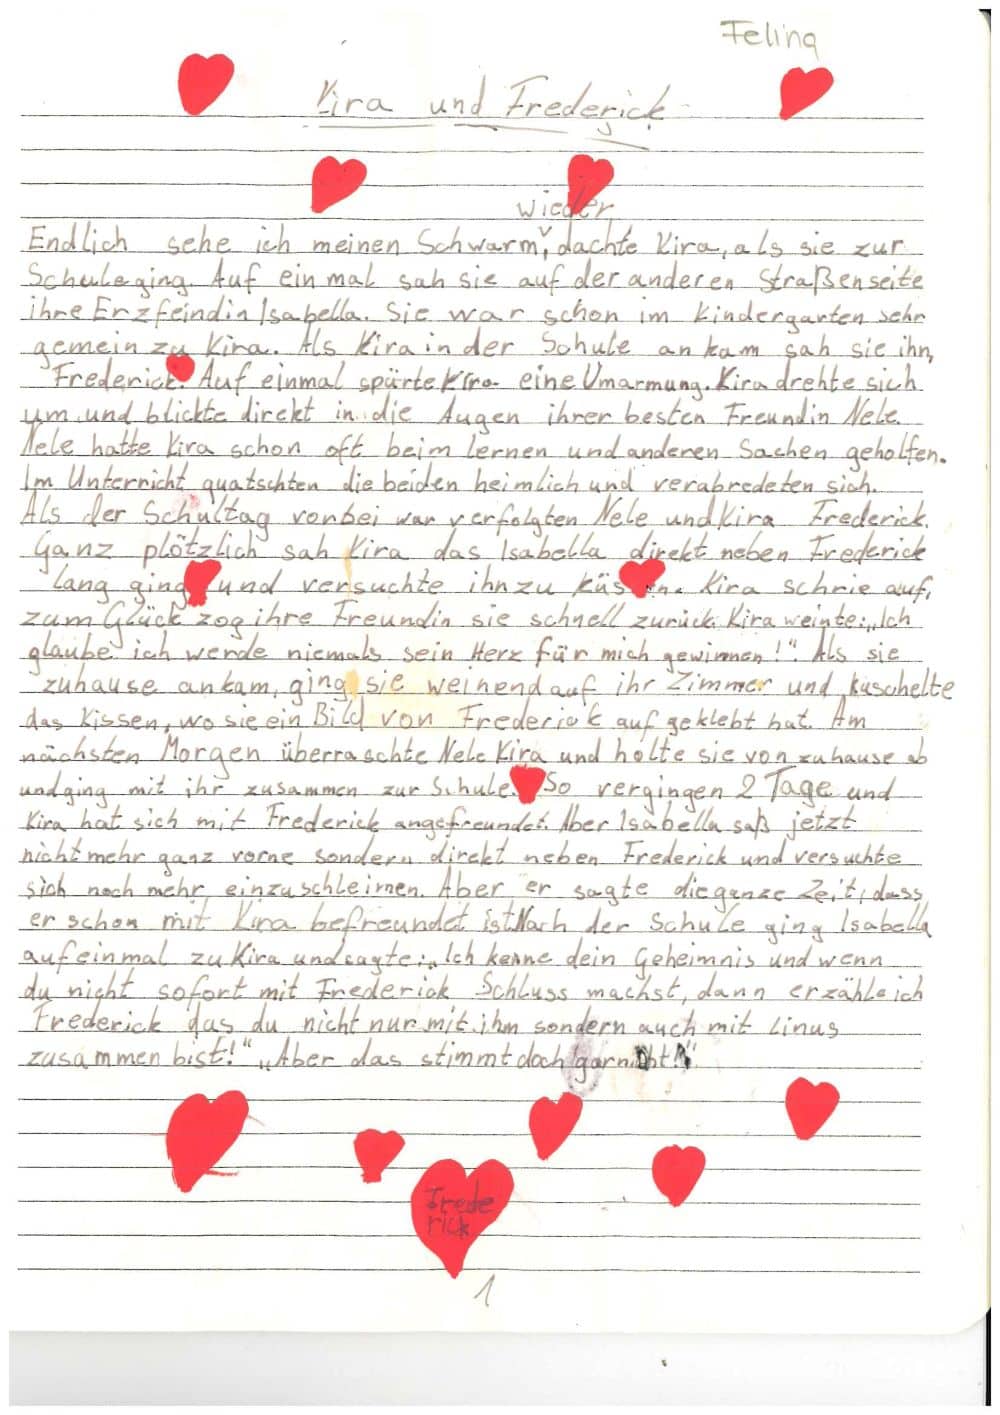 Felina
Kira und Frederick
wieder
Endlich sehe ich meinen Schwarm, dachte Kira, als sie zur
Schule ging. Auf ein mal sah sie auf der anderen Straßenseite
ihre Erzfeindin Isabella. Sie war schon im Kindergarten sehr
gemein zu Kira. Als Kira in der Schule an kam sah sie ihn,
Frederick. Auf einmal spürte Kira eine Umarmung. Kira drehte sich
um und blickte direkt in die Augen ihrer besten Freundin Nele.
Nele hatte Kira schon oft beim lernen und anderen Sachen geholfen.
Im Unterricht quatschten die beiden heimlich und verabredeten sich.
Als der Schultag vorbei war verfolgten Nele und Kira Frederick.
Ganz plötzlich sah Kira das Isabella direkt neben Frederick
lang ging und versuchte ihn zu küssen. Kira schrie auf,
zum Glück zog ihre Freundin sie schnell zurück. Kira weinte: „Ich
glaube ich werde niemals sein Herz für mich gewinnen!". Als sie
zuhause an kam, ging sie weinend auf ihr Zimmer und kuschelte
das Kissen, wo sie ein Bild von Frederick auf geklebt hat. Am
nächsten Morgen überraschte Nele Kira und holte sie von zuhause ab
und ging mit ihr zusammen zur Schule. So vergingen 2 Tage und
Kira hat sich mit Frederick angefreundet. Aber Isabella saß jetzt
nicht mehr ganz vorne sondern direkt neben Frederick und versuchte
sich noch mehr einzuschleimen. Aber er sagte die ganze Zeit, dass
er schon mit Kira befreundet ist. Nach der Schule ging Isabella
auf einmal zu Kira und sagte: „Ich kenne dein Geheimnis und wenn
du nicht sofort mit Frederick Schluss machst, dann erzähle ich
Frederick das du nicht nur mit ihm sondern auch mit Linus
zusammen bist!" „Aber das stimmt doch garnicht!"
Frede
rick
1